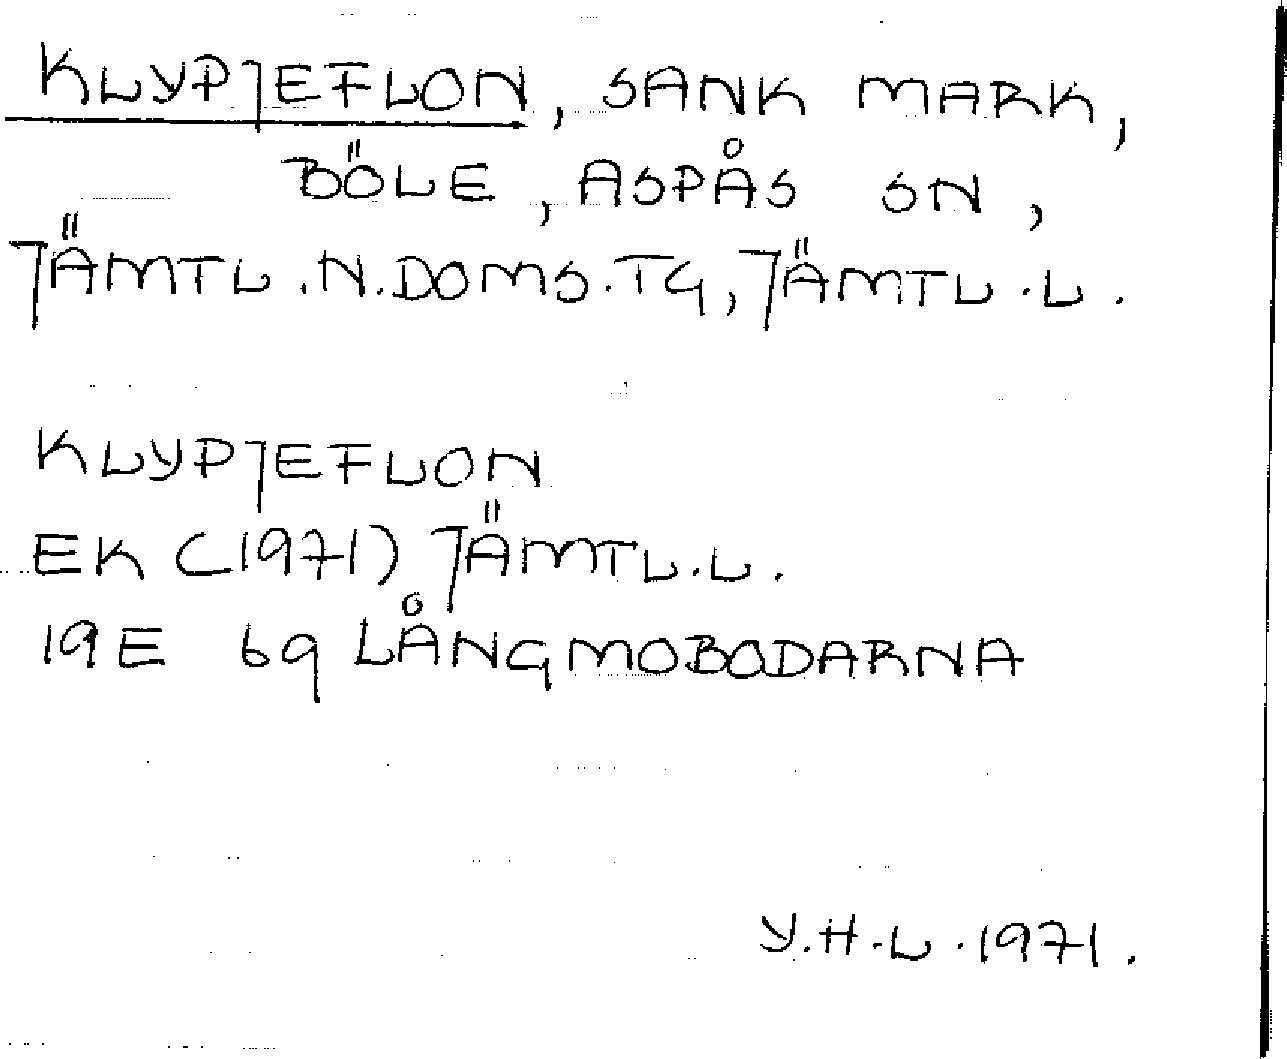 KLYPJEFLON, SANK MARK,
BÖLE, ASPÅS SN,
JÄMTL.N.DOMS.TG, JÄMTL.L.
KLYPJEFLON
EK (1971) JÄMTL.L.
19E 6g LÅNGMOBODARNA
Y.H.L.1971.